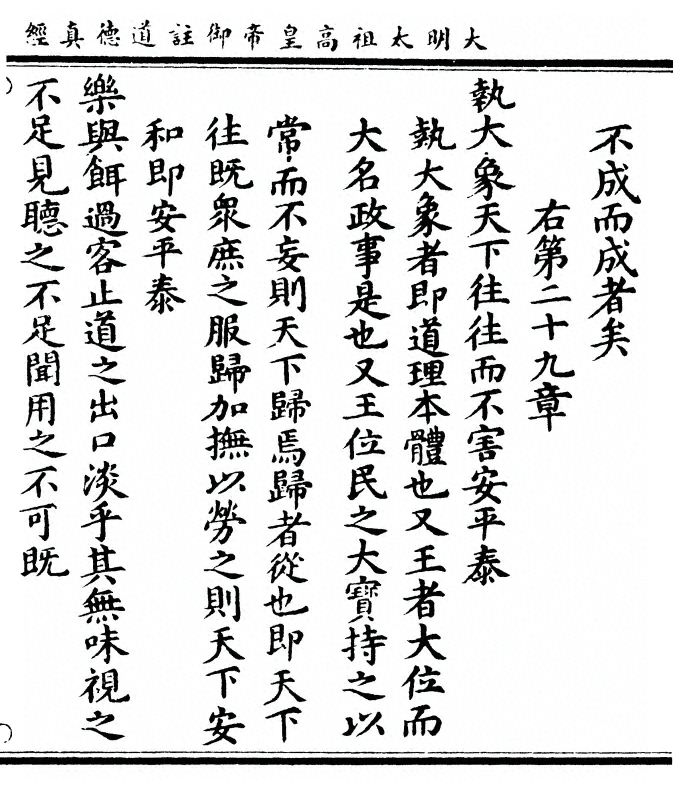 大明太祖高皇帝御註道德真經
不成而成者矣
右第二十九章
執大象天下往往而不害安平泰
執大象者即道理本體也又王者大位而
大名政事是也又王位民之大寶持之以
常而不妄則天下歸焉歸者從也即天下
往既衆庶之服歸加撫以勞之則天下安
和即安平泰
樂與餌過客止道之出口淡乎其無味視之
不足見聽之不足聞用之不可既